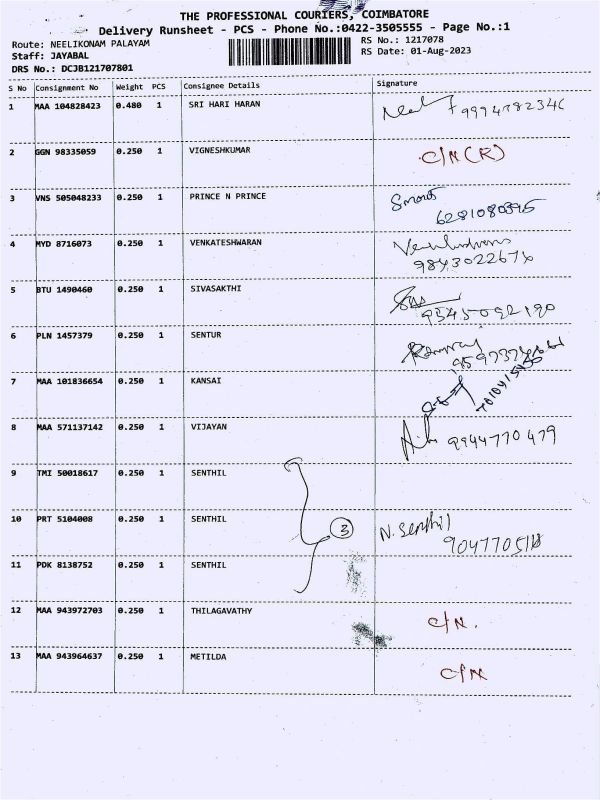 THE PROFESSIONAL COURIERS, COIMBATORE
Delivery Runsheet - PCS - Phone No.:0422-3505555 - Page No.:1
Route: NEELIKONAM PALAYAM RS No.: 1217078
Staff: JAYABAL RS Date: 01-Aug-2023
DRS No.: DCJB121707801
S No Consignment No Weight PCS Consignee Details Signature
1 MAA 104828423 0.480 1 SRI HARI HARAN
2 GGN 98335059 0.250 1 VIGNESHKUMAR C/N (R)
3 VNS 505048233 0.250 1 PRINCE N PRINCE
6281080395
4 MYD 8716073 0.250 1 VENKATESHWARAN
5 BTU 1490460 0.250 1 SIVASAKTHI
9345092190
6 PLN 1457379 0.250 1 SENTUR
7 MAA 101836654 0.250 1 KANSAI
8 MAA 571137142 0.250 1 VIJAYAN 9944770479
9 TMI 50018617 0.250 1 SENTHIL
10 PRT 5104008 0.250 1 SENTHIL 3 N. Senthil
11 PDK 8138752 0.250 1 SENTHIL
12 MAA 943972703 0.250 1 THILAGAVATHY C/N.
13 MAA 943964637 0.250 1 METILDA C/N